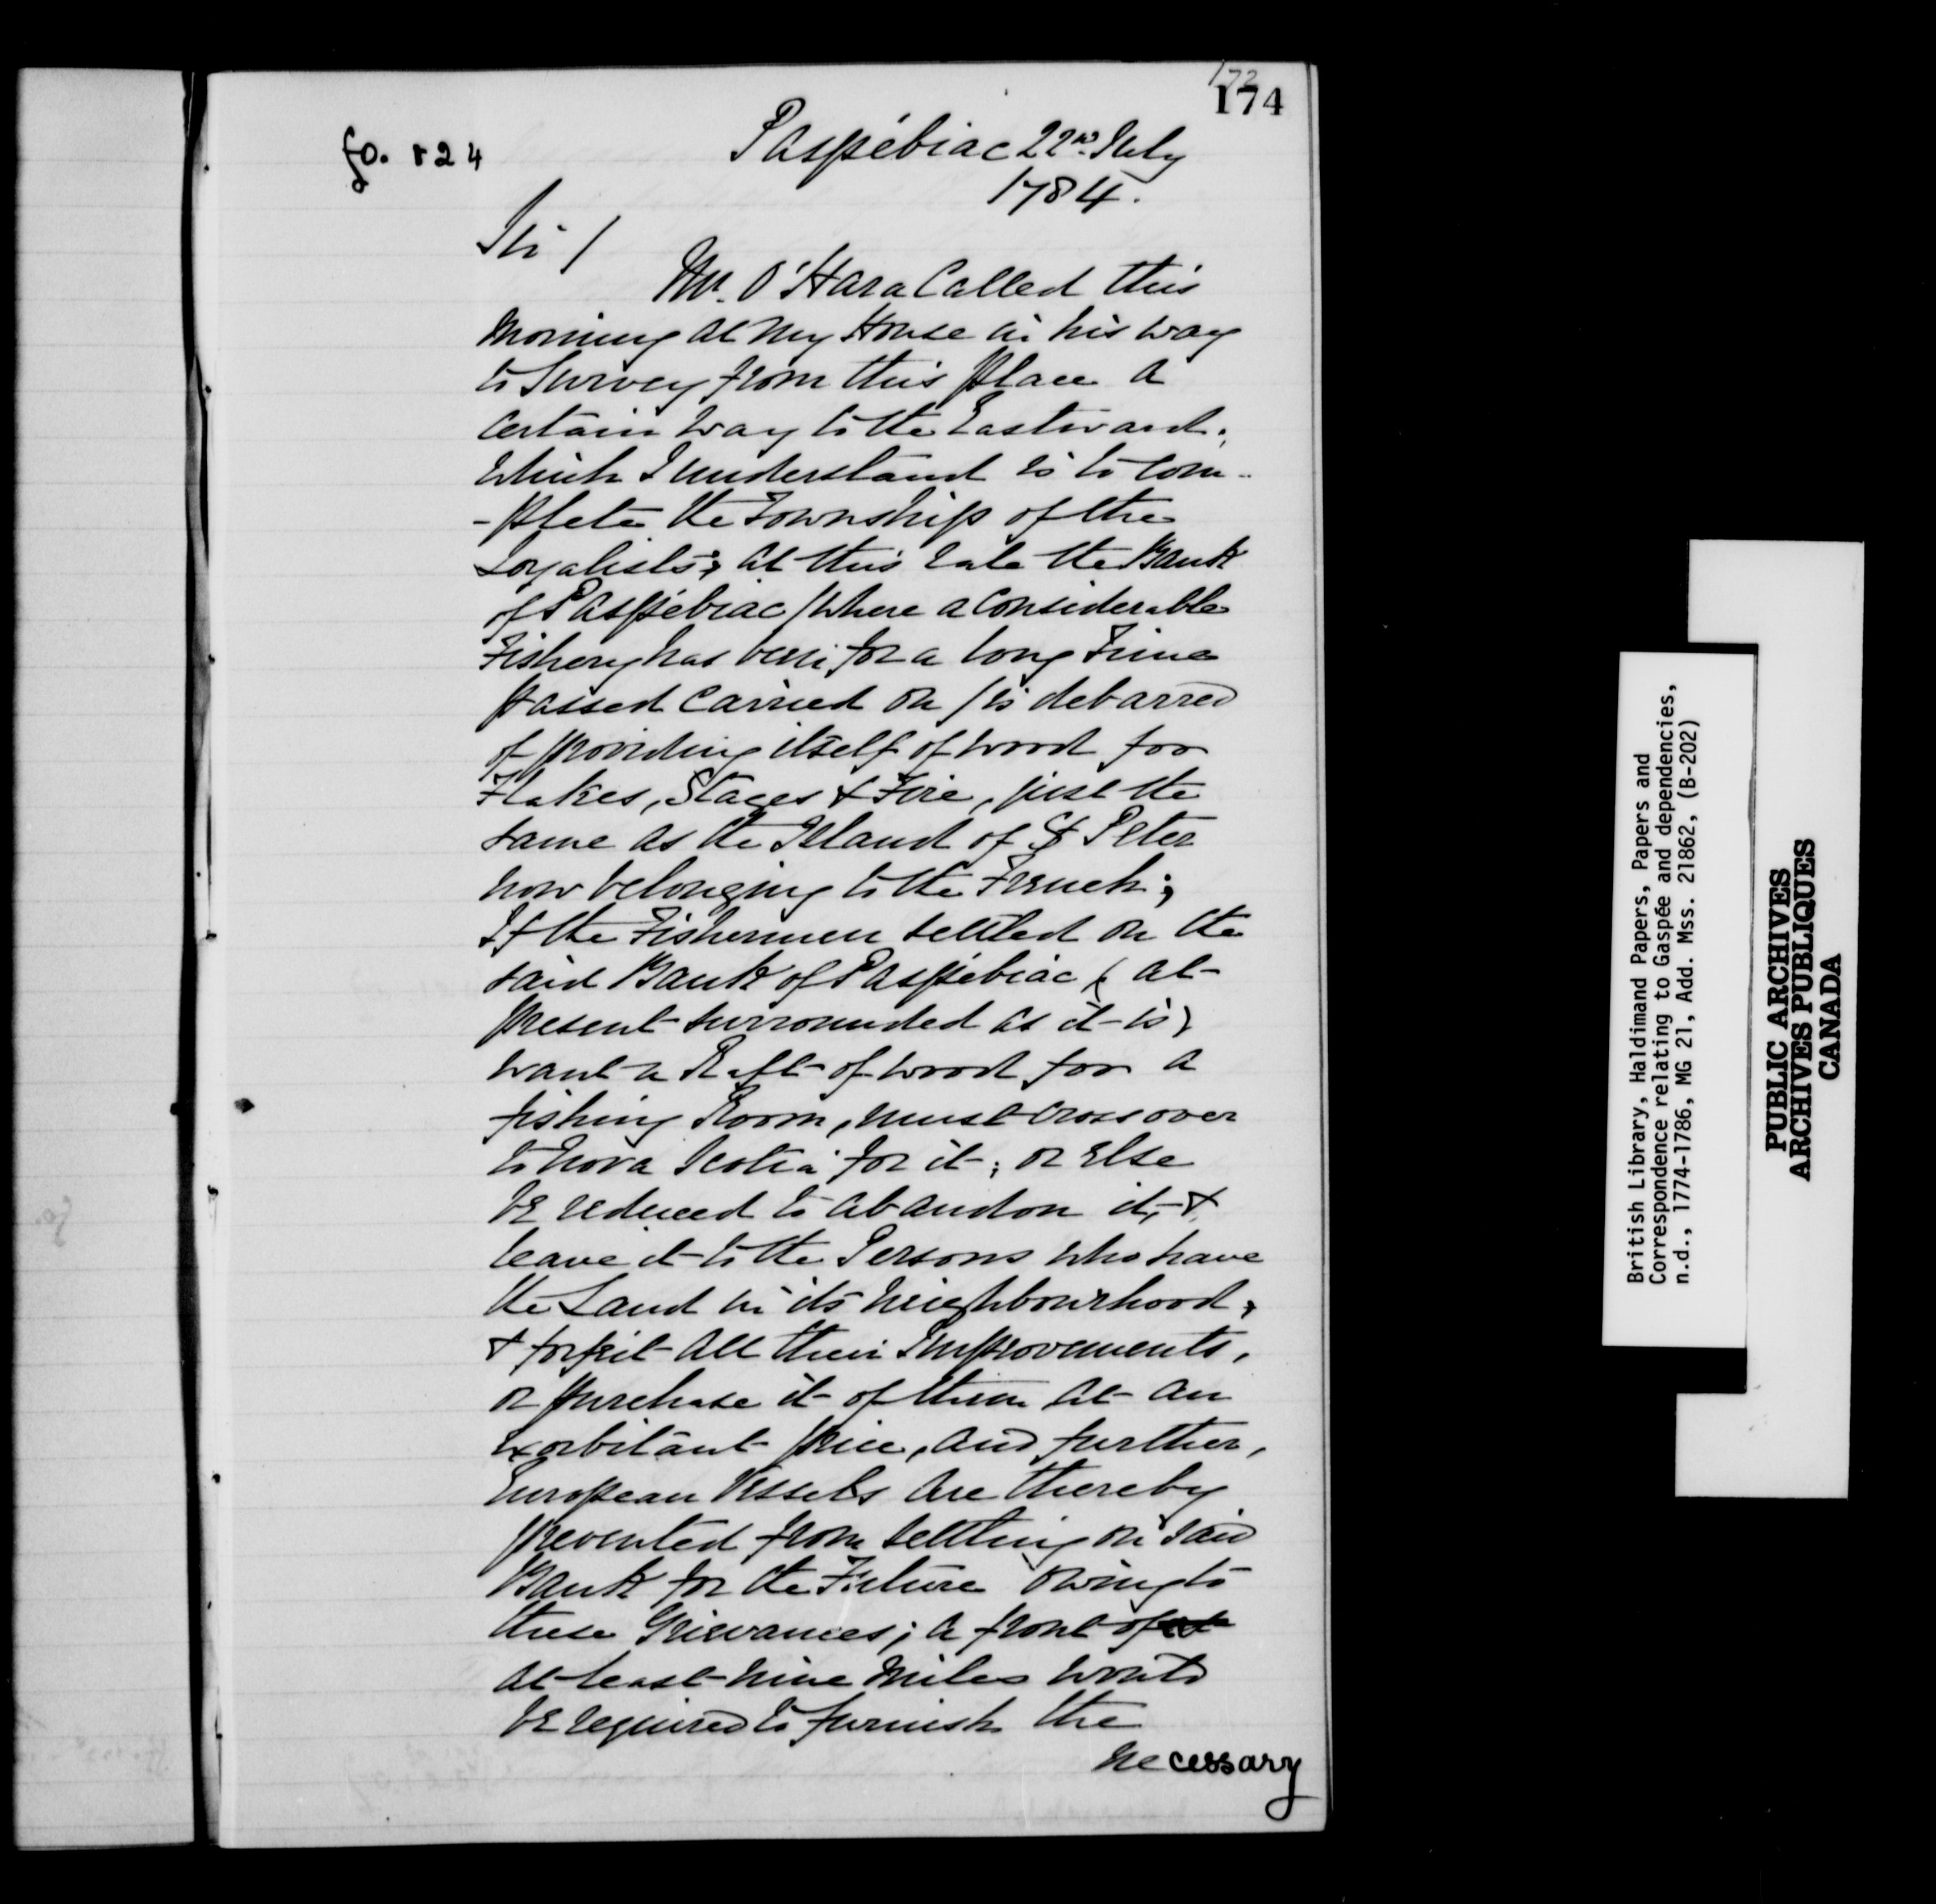 172
174
fo. 124
Paspébiac 22nd July
1784.
Sir /
Mr. O'Hara Called this
Morning at My House in his way
to Survey from this Place a
Certain way to the Eastward;
which I understand is to com-
-plete the Township of the
Loyalists; at this rate the Bank
of Paspébiac / where a considerable
Fishery has been for a long Time
passed Carried on / is debarred
of providing itself of wood for
Flakes, Stages & Fire, just the
same as the Island of St Peter
now belonging to the French;
If the Fishermen settled on the
said Bank of Paspébiac ( at
present surrounded as it is)
want a Raft of wood for a
fishing Room, must cross over
to Nova Scotia for it; or Else
be reduced to abandon it, &
leave it to the Persons who have
the Land in its Neighbourhood,
& forfeit all their Improvements,
or purchase it of them at an
Exorbitant price, and further,
European Vessels are thereby
prevented from settling on said
Bank for the Future owing to
these Grievances; a front of
at least nine Miles would
be required to furnish the
necessary
British Library, Haldimand Papers, Papers and
Correspondence relating to Gaspée and dependencies,
n.d., 1774-1786, MG 21, Add. Mss. 21862, (B-202)
PUBLIC ARCHIVES
ARCHIVES PUBLIQUES
CANADA